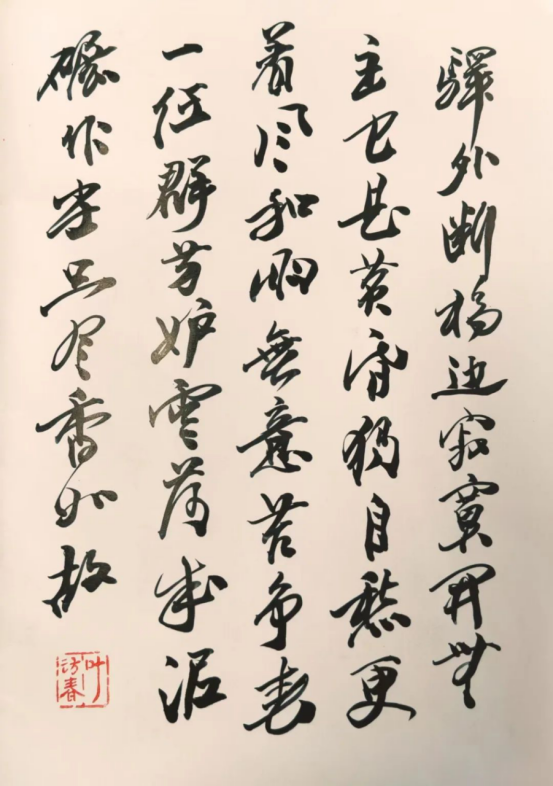 驛外断橋边寂寞開無
主已是黄昏獨自愁更
着风和雨無意苦争春
一任群芳妒零落成泥
碾作尘只有香如故
叶访春